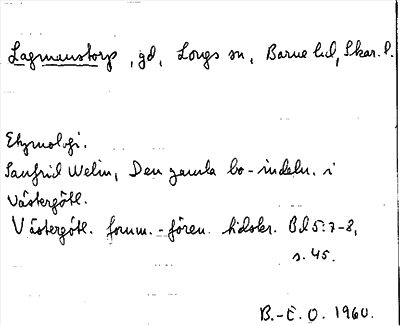 Lagmanstorp, gd, Longs sn, Barne hd, Skar. l.
Etymologi.
Sanfrid Welin, Den gamla bo-indeln. i
Västergötl.
Västergötl. fornm.-fören. tidskr. Bd 5:7-8,
s. 45.
B.-E. O. 1960.